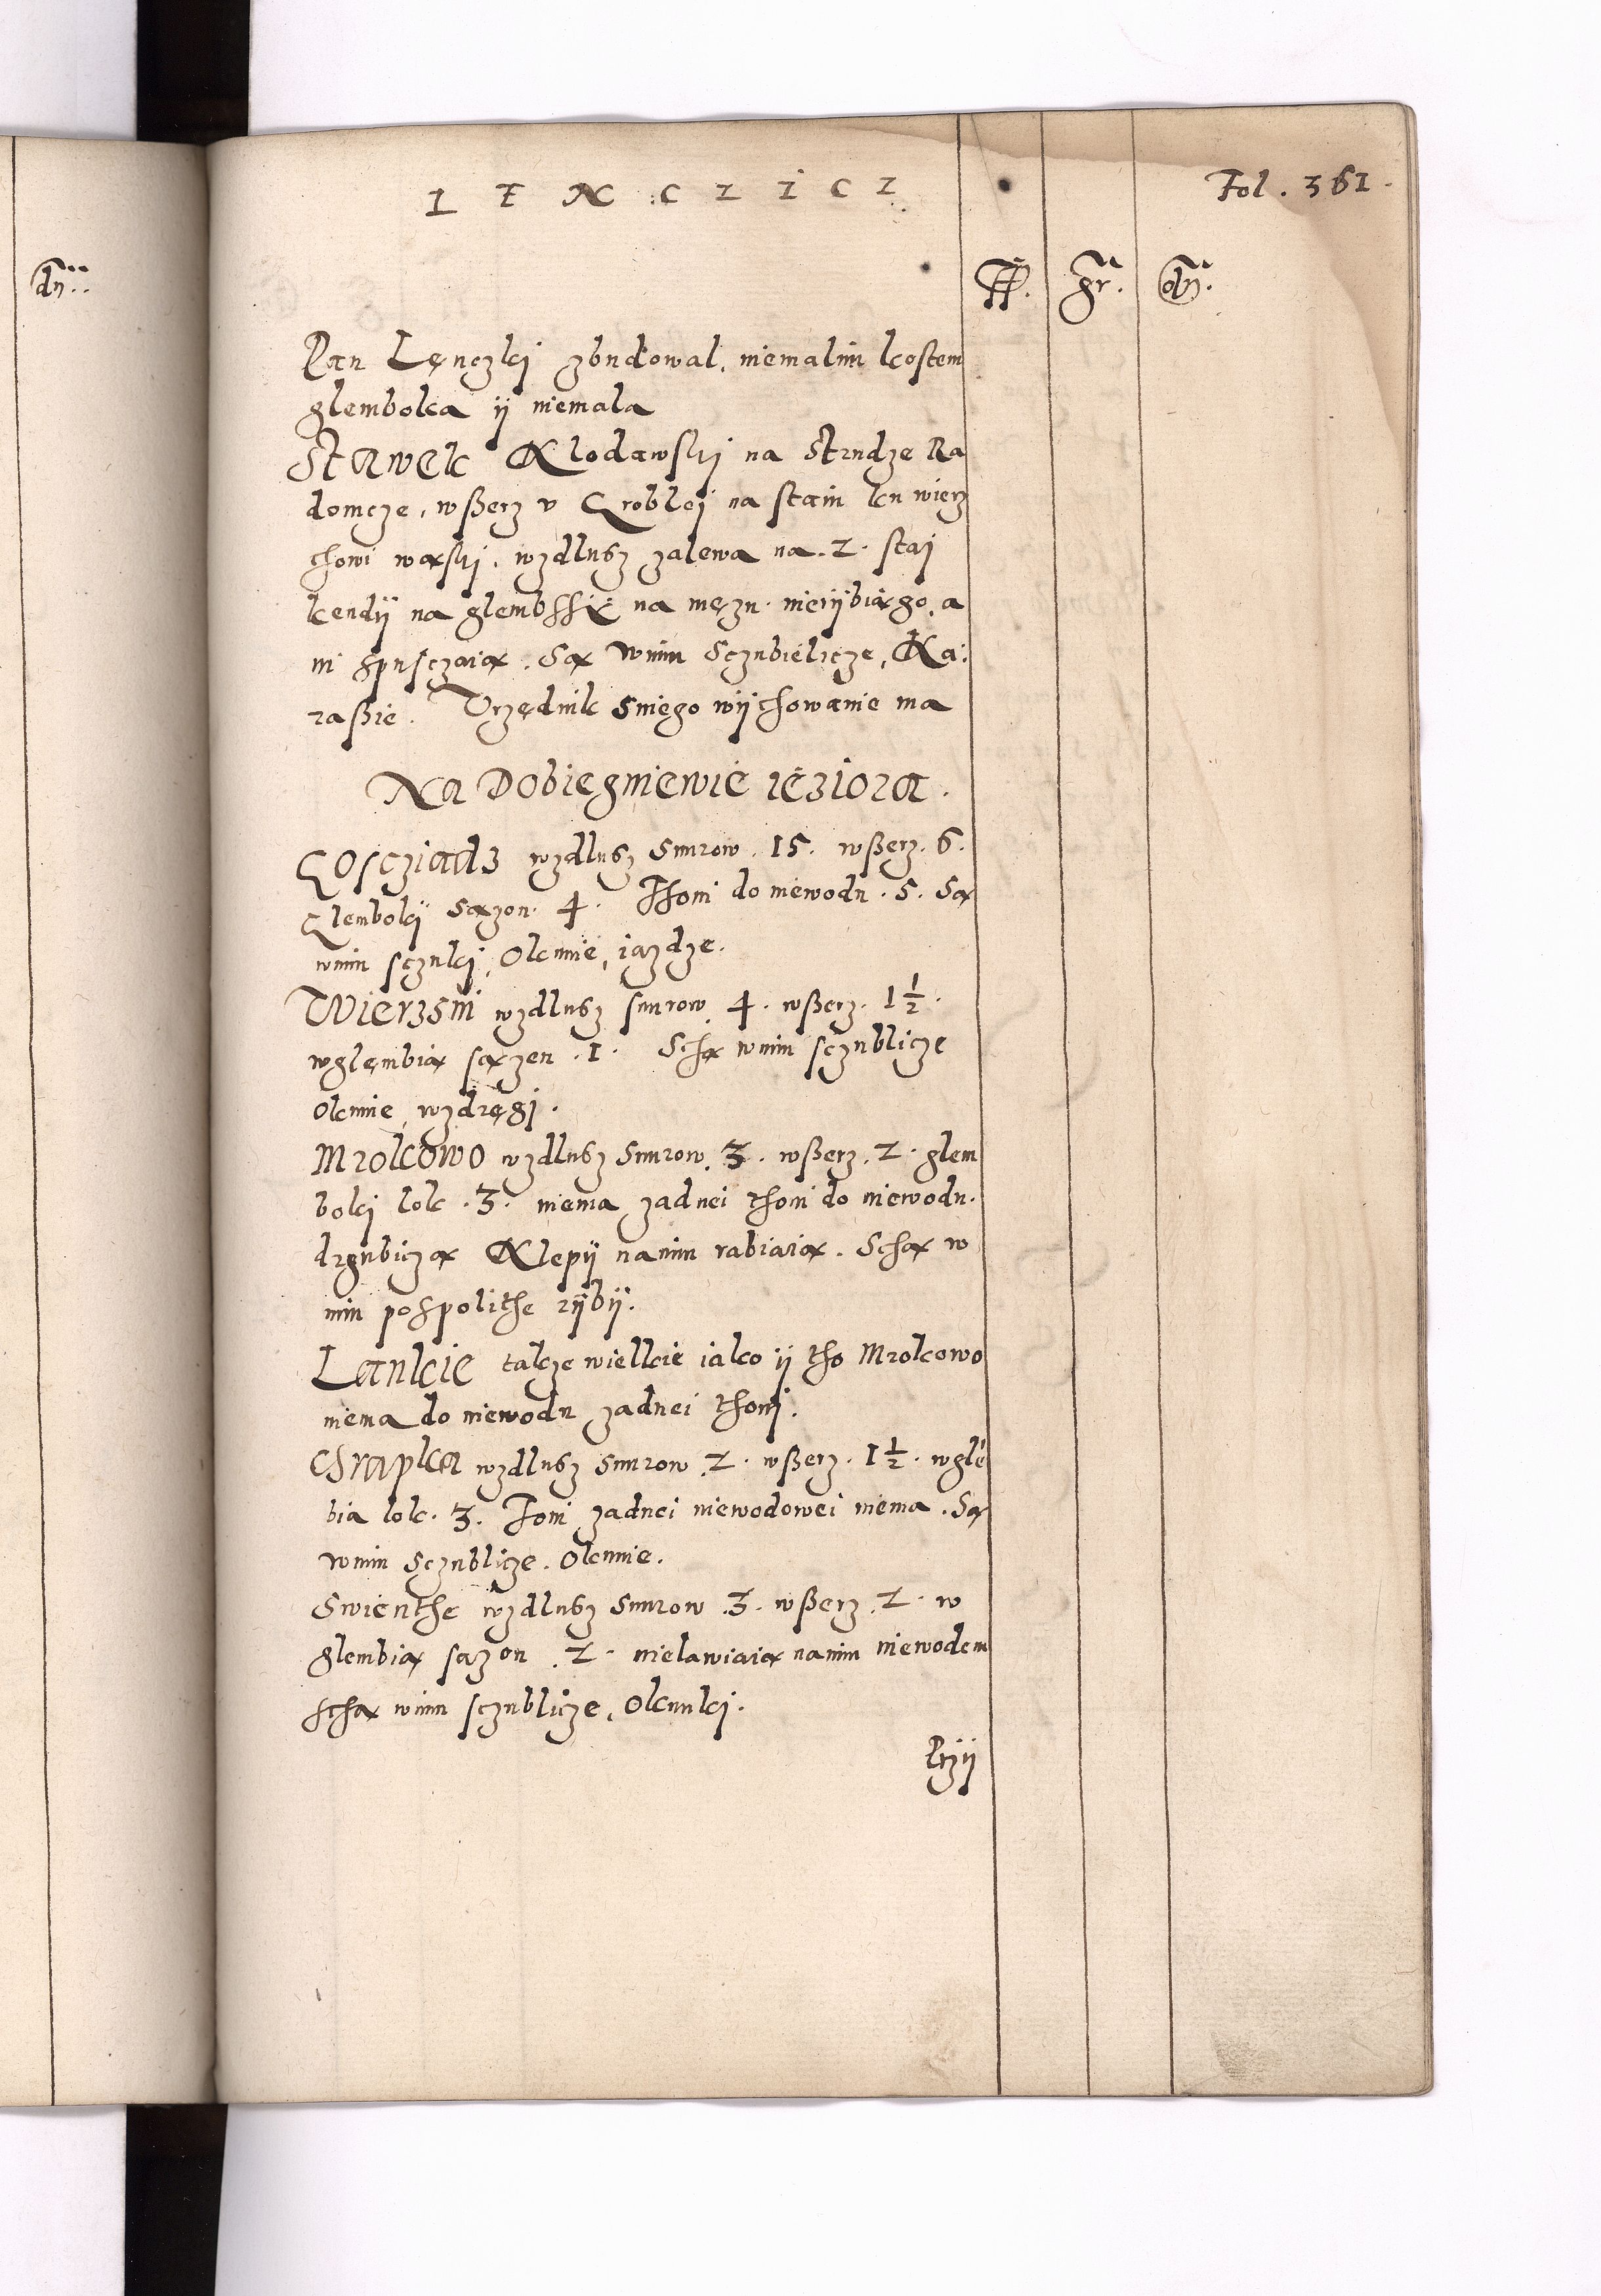 LENCZICZ
Fol. 361.
dn.
ff. gr. dn.
Pan Lęnczki zbudował, niemalim kostem
glemboka ÿ niemala
Stawek Kłodawski na Strudze Ra
domcze, wßerz v Grobley na staiu ku wierz
chowi wąski, wzdlusz zalewa na .2. stai
kendÿ na glembssÿ na męzu. nierÿbiągo, a
ni spusczaią. Są wnim Sczubielicze, Ka:
raßie. Vrzędnik sniego wÿchowanie ma
Na Dobiegniewie ieziora.
Goscziądz wzdlusz snurow .15. wßerz .6.
Glembokÿ Sązon .4. Thoni do niewodu .5. Są
wnim sczuki, Okunie, iazdze.
Wierzsni wzdlusz snurow .4. wßerz .1½.
wglęmbią sązen .1. Schą wnim sczublicze
okunie, wzdręgi.
Mrokowo wzdlusz snurow .3. wßerz .2. glem
boki lok .3. niema zadnei thoni do niewodu.
drgubiczą Klepÿ nanim rabiaią. Schą w
nim pospolithe rÿbÿ.
Lankie takze wielkie iako ÿ tho Mrokowo
niema do niewodu zadnei thoni.
Chrapka wzdlusz snurow .2. wßerz .1½. wglē
bia lok .3. Toni zadnei niewodowei niema. Są
wnim Sczublicze. Okunie.
Swienthe wzdlusz snurow .3. wßerz .2. w
glembią sązon .2. nielawiaią nanim niewodem
schą wnim sczublicze, Okunki.
Przÿ